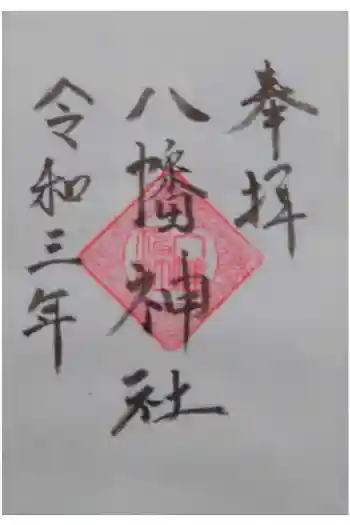 奉拝
八幡神社
令和三年